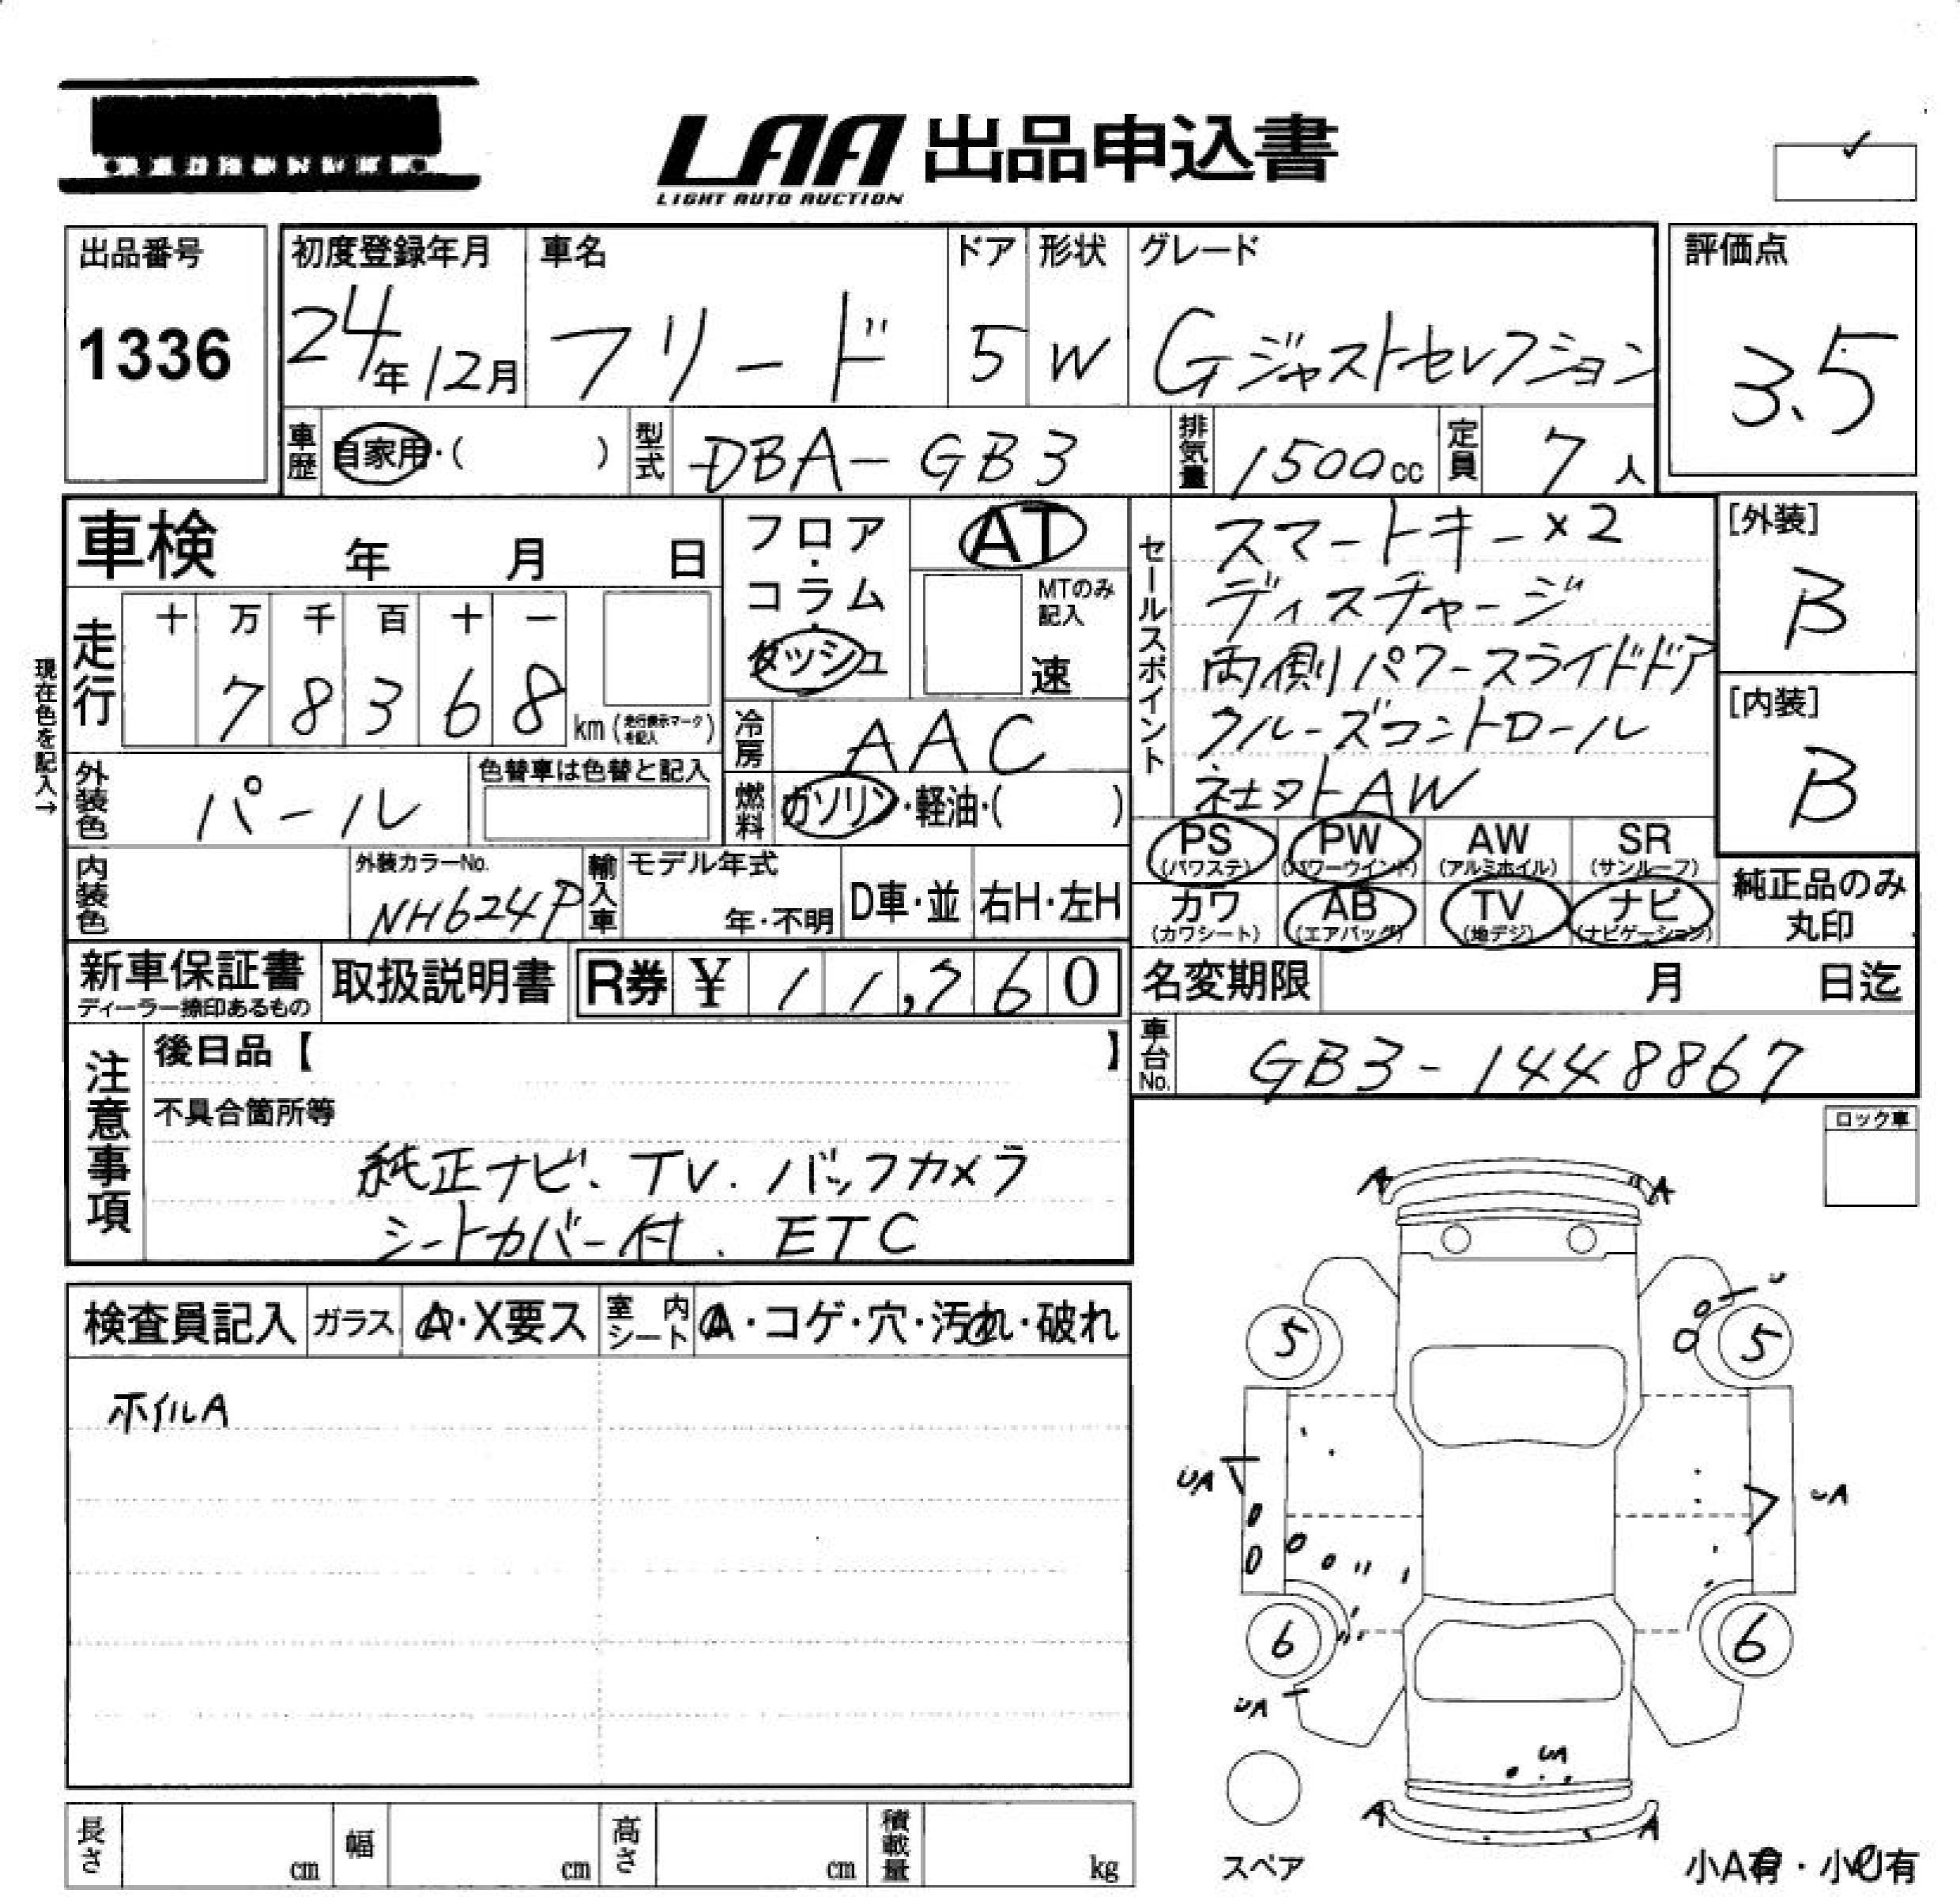 LAA 出品申込書
LIGHT AUTO AUCTION
出品番号
1336
初度登録年月
24年12月
車名
フリード
ドア
5
形状
W
グレード
Gジャストセレクション
評価点
3.5
車歴
自家用・( )
型式
DBA-GB3
排気量
1500cc
定員
7人
車検 年 月 日
フロア・コラム・ダッシュ
AT
MTのみ記入
速
現在色を記入→
走行
十 万 千 百 十 一
7 8 3 6 8 km (走行表示マークを記入)
冷房
AAC
外装色
パール
色替車は色替と記入
燃料
ガソリン・軽油・( )
内装色
外装カラーNo.
NH624P
輸入車
モデル年式
年・不明
D車・並
右H・左H
新車保証書
ディーラー捺印あるもの
取扱説明書
R券 ¥ 11,760
セールスポイント
スマートキー×2
ディスチャージ
両側パワースライドドア
クルーズコントロール
社外AW
[外装]
B
[内装]
B
PS (パワステ)
PW (パワーウインド)
AW (アルミホイル)
SR (サンルーフ)
カワ (カワシート)
AB (エアバッグ)
TV (地デジ)
ナビ (ナビゲーション)
純正品のみ丸印
名変期限 月 日迄
車台No.
GB3-1448867
注意事項
後日品【 】
不具合箇所等
純正ナビ、TV.バックカメラ
シートカバー付.ETC
ロック車
検査員記入
ガラス
A・X要ス
室内シート
A・コゲ・穴・汚れ・破れ
ホイルA
A A
5 5
UA UA
6 6
UA
UA
A A
スペア
小A有・小U有
長さ cm
幅 cm
高さ cm
積載量 kg